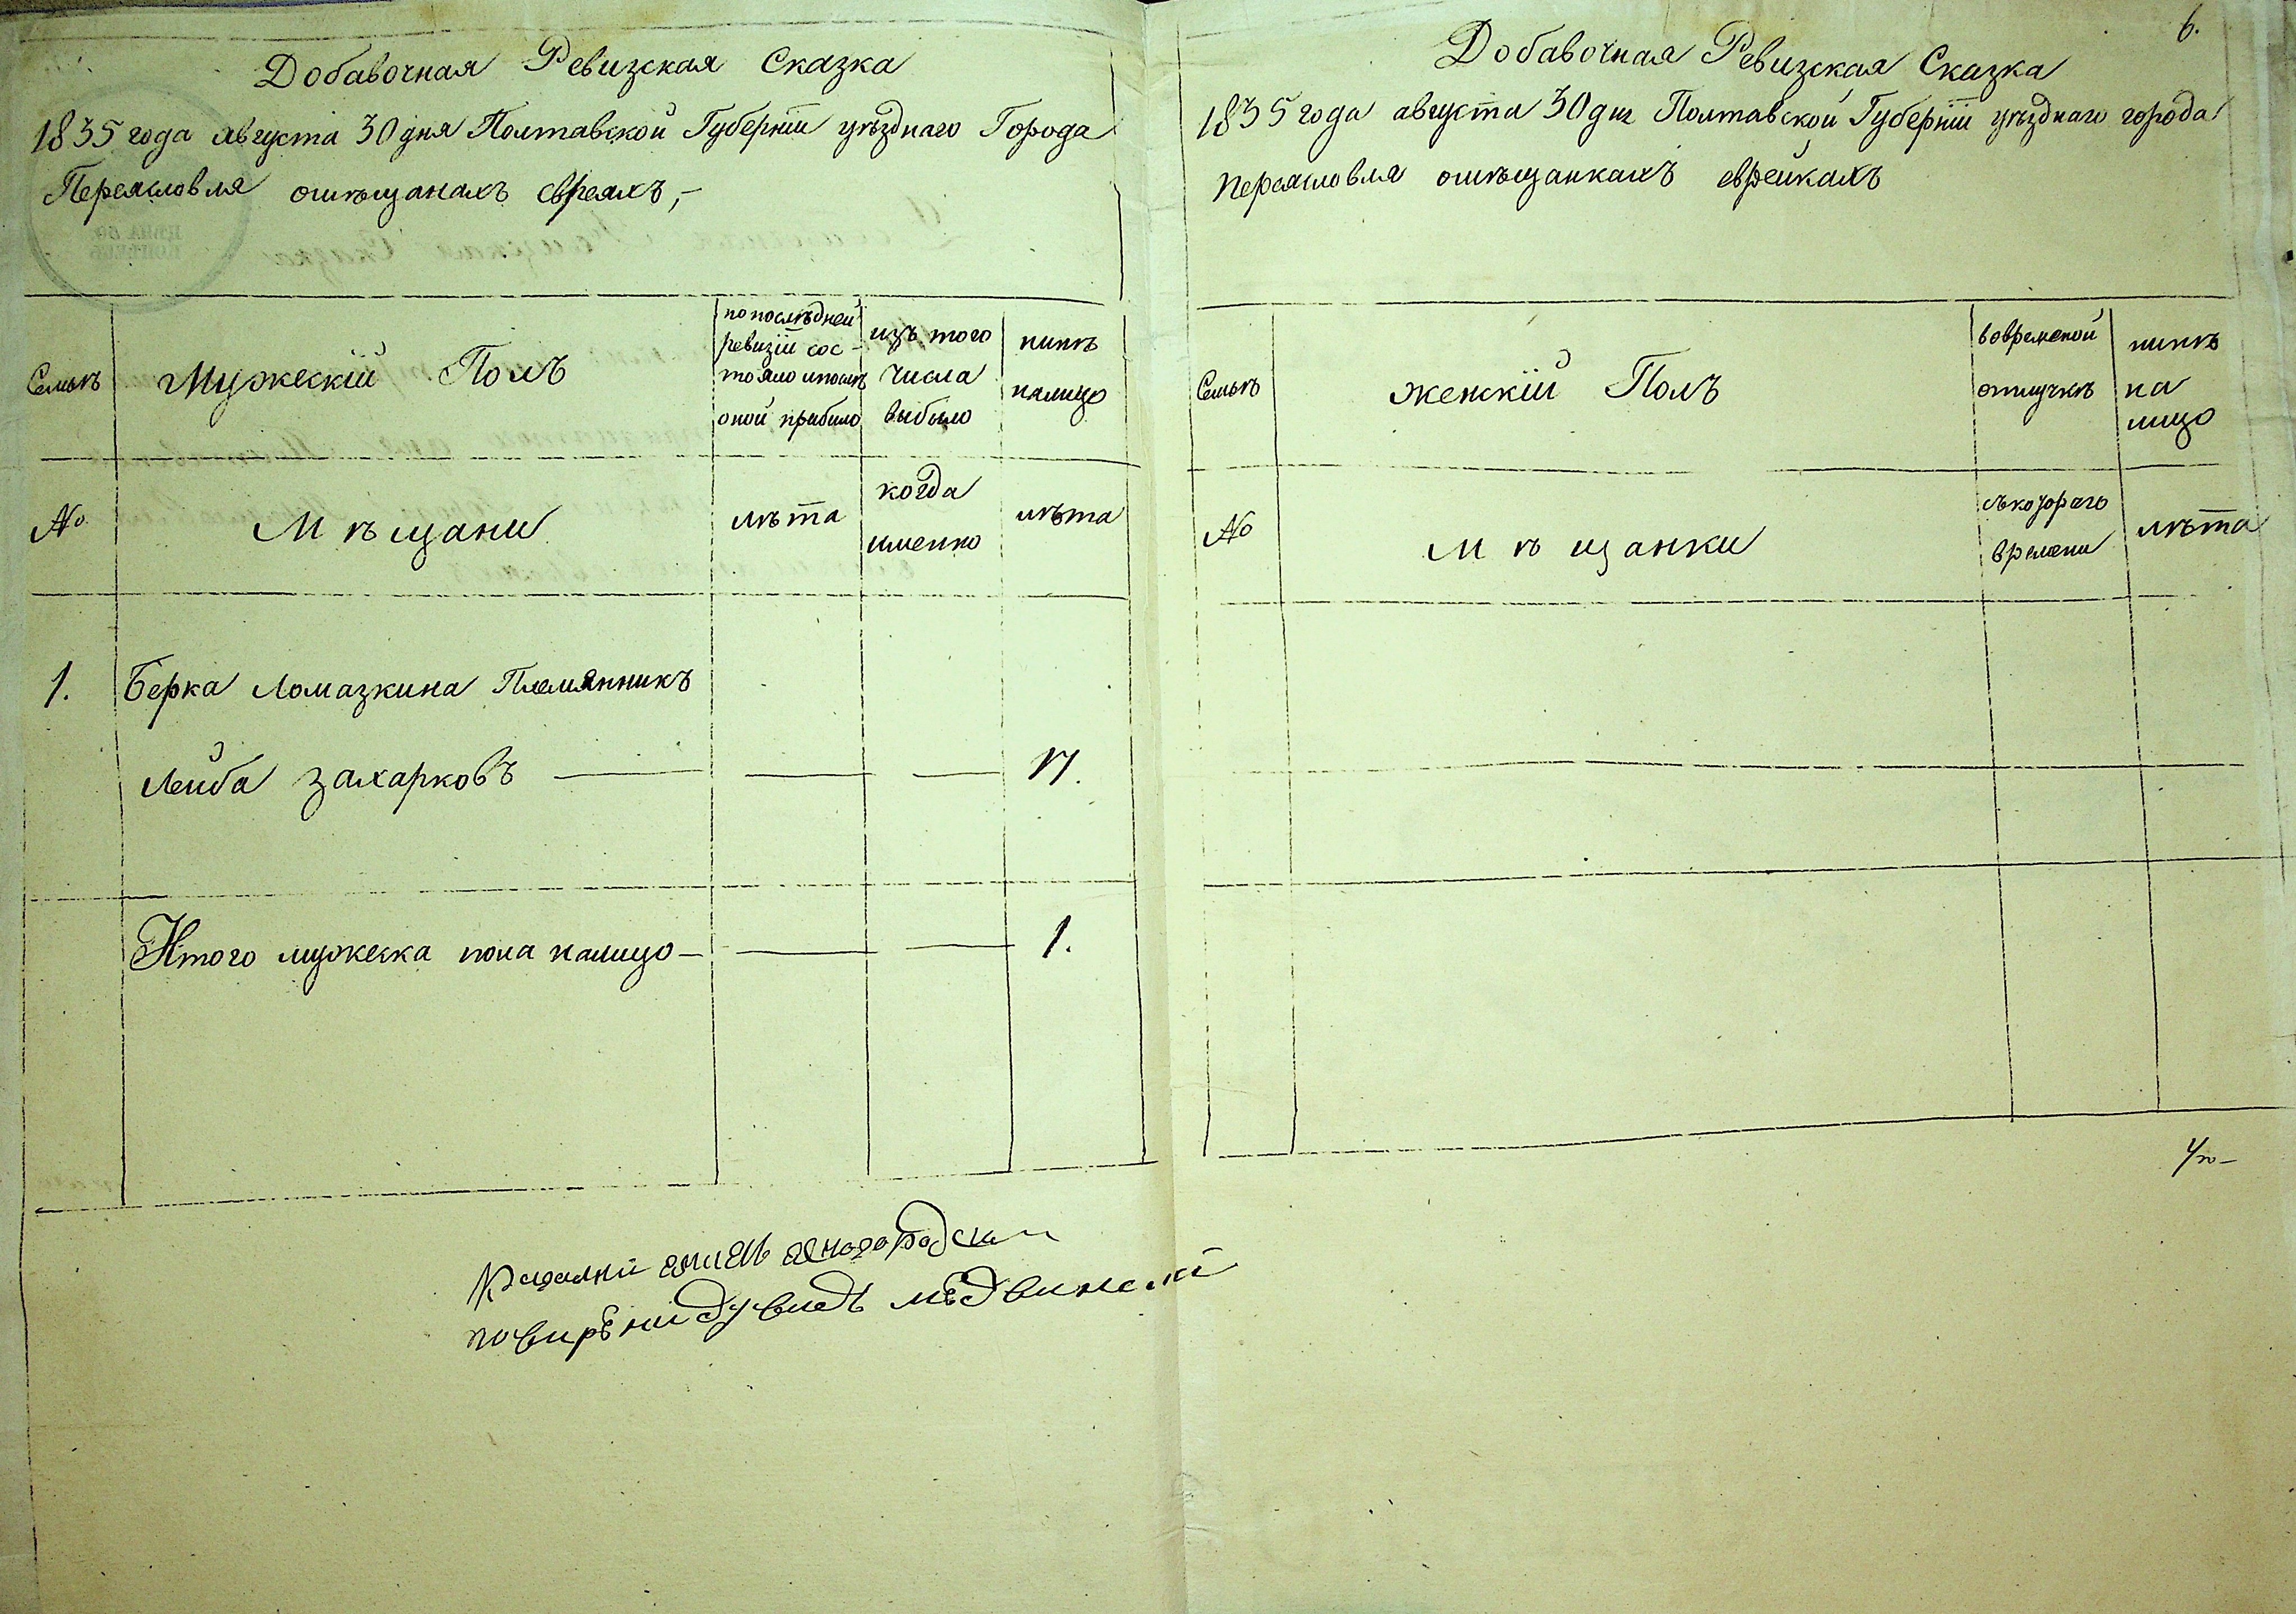 Добавочная Ревизская Сказка
1835 года августа 30 дня Полтавской Губерніи уѣзднаго Города
Переяславля омѣщанахъ евреяхъ,-
Семьѣ
Мужескій Полъ
по послѣдней
ревизіи сос-
тояло и послѣ
оной прибыло
изъ того
числа
выбыло
нынѣ
налицо
№
Мѣщани
лѣта
когда
именно
лѣта
1. Берка Ломазкина Племянникъ
Лейба Захарковъ 17.
Итого мужеска пола налицо- 1.
повирений Дувидъ
6.
Добавочная Ревизская Сказка
1835 года августа 30 дня Полтавской Губерніи уѣзднаго города
Переяславля омѣщанкахъ еврейкахъ
Семьѣ
женскій Полъ
вовременной
отлучкѣ
нынѣ
на
лицо
№
Мѣщанки
съкотораго
времени
лѣта